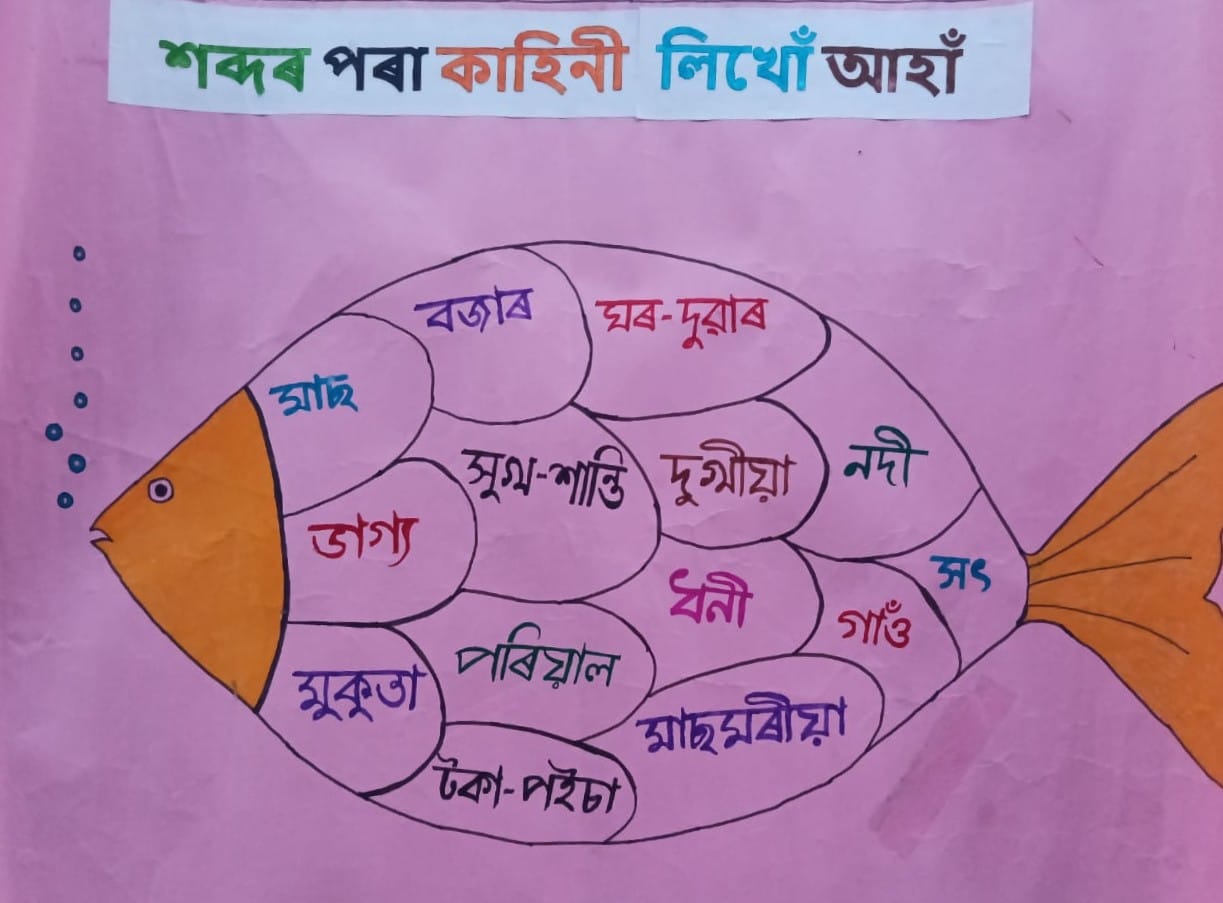 শব্দৰ পৰা কাহিনী লিখোঁ আহাঁ
বজাৰ
ঘৰ-দুৱাৰ
মাছ
সুখ-শান্তি
দুখীয়া
নদী
ভাগ্য
ধনী
গাওঁ
সৎ
মুকুতা
পৰিয়াল
মাছমৰীয়া
টকা-পইচা